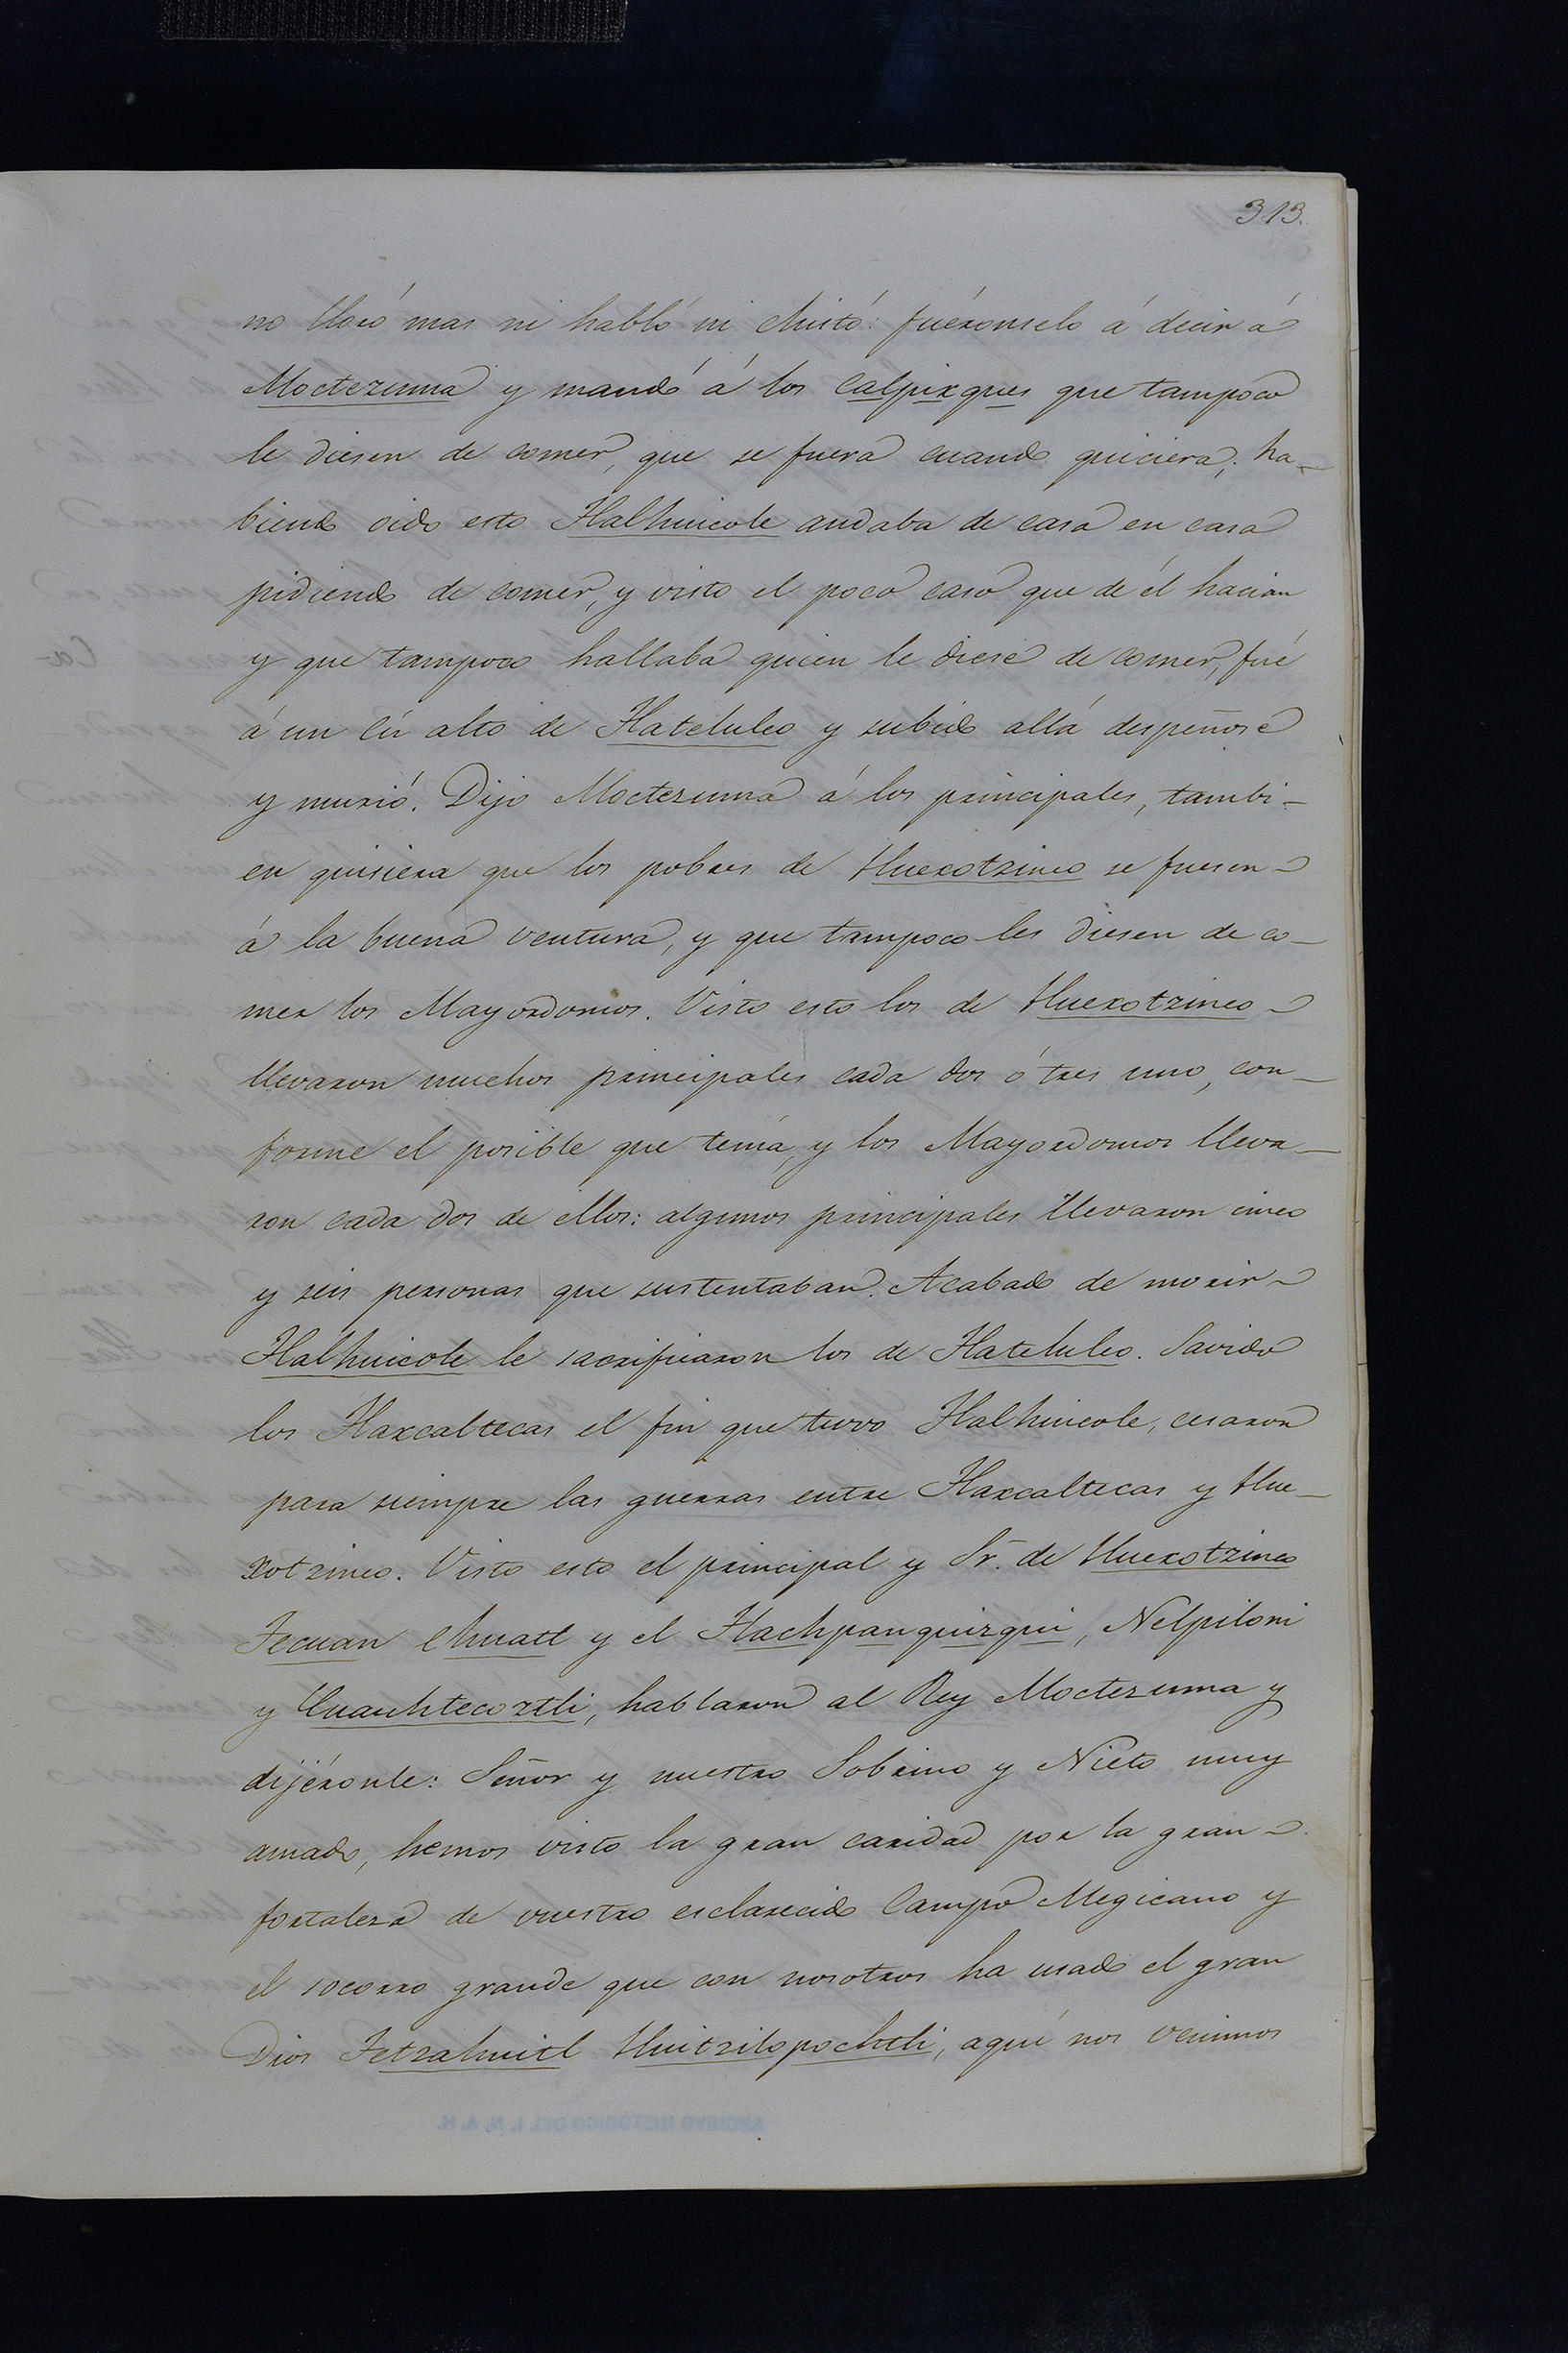 313.
no lloró mas ni habló ni chistó: fuéronselo á decir á
Moctezuma y mandó á los Calpixques que tampoco
le diesen de comer, que se fuera cuando quiciera; ha-
biendo oido esto Tlalhuicole andaba de casa en casa
pidiendo de comer, y visto el poco caso que de él hacian
y que tampoco hallaba quien le diese de comer, fué
á un Cú alto de Tlatelulco y subido allá despeñose
y murió. Dijo Moctezuma á los principales, tambi-
en quisiera que los pobres de Huexotzinco se fuesen
á la buena ventura, y que tampoco les diesen de co-
mer los Mayordomos. Visto esto los de Huexotzinco
llevaron muchos principales cada dos ó tres uno, con-
forme el posible que tenía, y los Mayordomos lleva-
ron cada dos de ellos: algunos principales llevaron cinco
y seis personas que sustentaban. Acabado de morir
Tlalhuicole le sacrificaron los de Tlatelulco. Savido
los Tlaxcaltecas el fin que tuvo Tlalhuicole, cesaron
para siempre las guerras entre Tlaxcaltecas y Hue-
xotzinco. Visto esto el principal y Sr. de Huexotzinco
Tecuan Ehuatl y el Tlachpanquizqui, Nelpiloni
y Cuauhtecoztli, hablaron al Rey Moctezuma y
dijéronle: Señor y nuestro Sobrino y Nieto muy
amado, hemos visto la gran caridad por la gran
fortaleza de vuestro esclarecido Campo Megicano y
el socorro grande que con nosotros ha usado el gran
Dios Tetzahuitl Huitzilopochtli, aquí nos venimos
ARCHIVO HISTORICO DEL I. N. A. H.